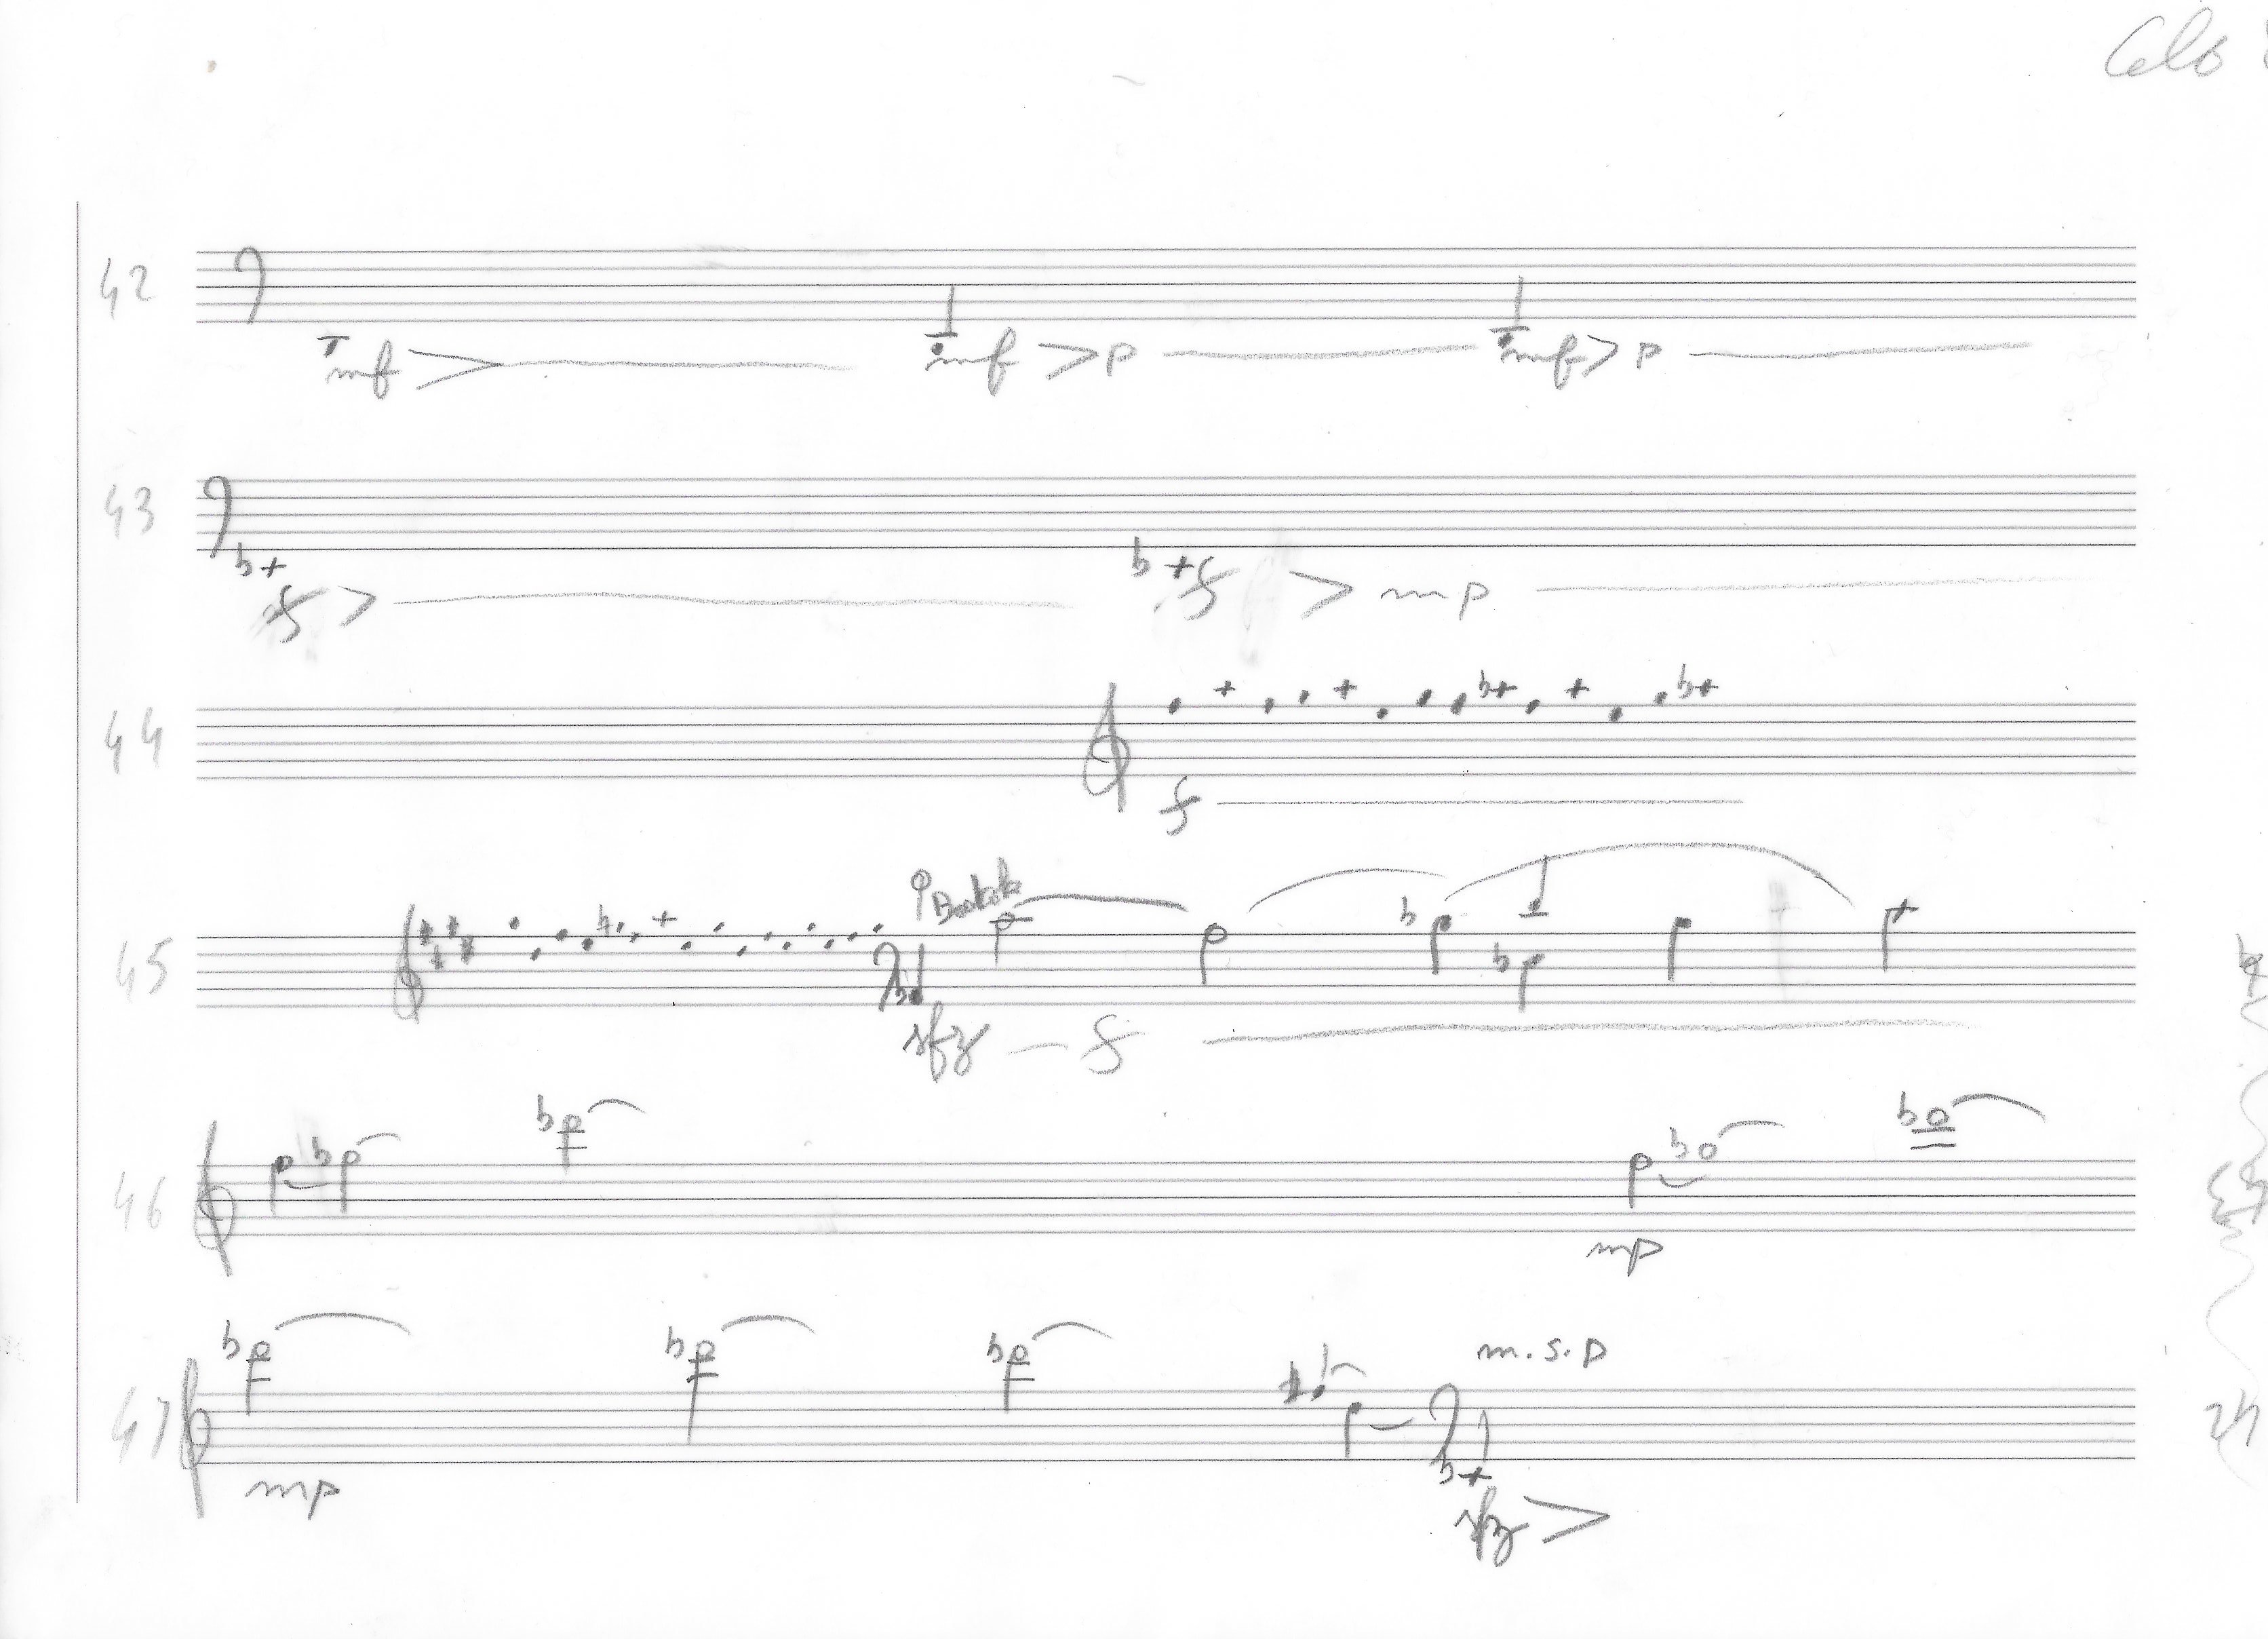 Celo
42
mf mf p mf p
43
f f mp
44
f
45
Bartok
sfz f
46
mp
47
m.s.p
mp
sfz